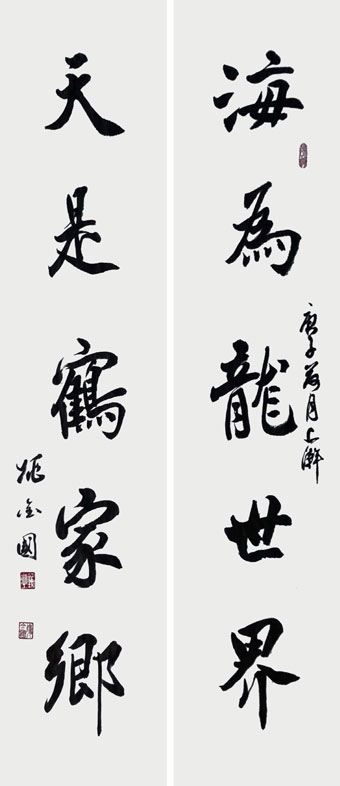 海為龍世界
庚子荷月上澣
天是鶴家鄉
姚金國